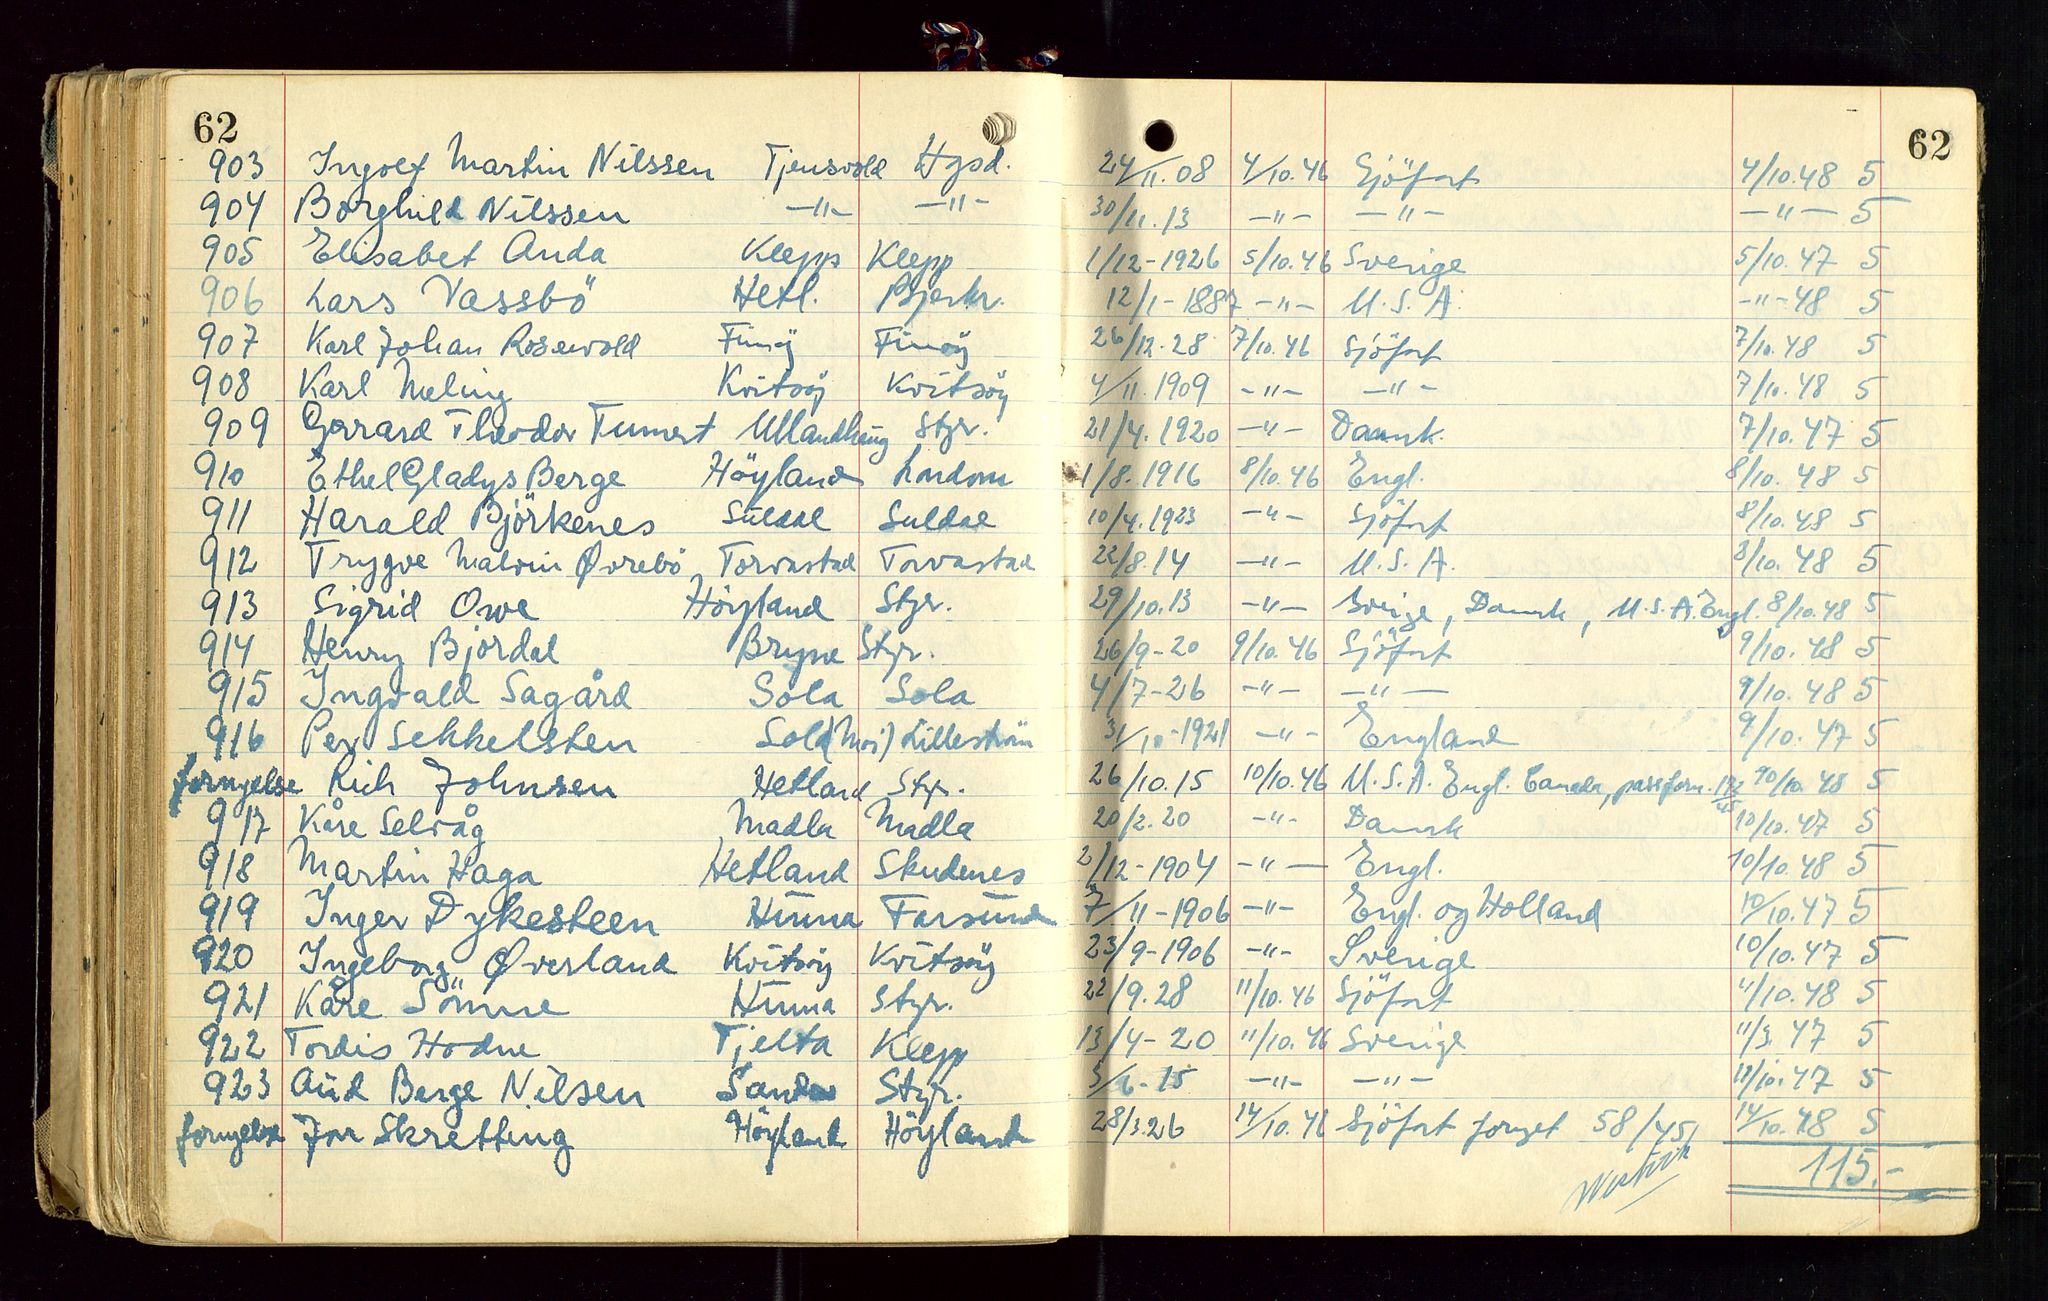 62 62
903 Ingolf Martin Nilssen Tjensvold Hgsd. 24/11.08 4/10.46 Sjöfart 4/10.48 5
904 Borghild Nilssen —"— —"— 30/11.13 —"— —"— —"— 5
905 Elisabet Anda Klepp Klepp 1/12-1926 5/10.46 Sverige 5/10.47 5
906 Lars Vassbö Hetl. Bjerkr. 12/1-1887 —"— U.S.A. —"—48 5
907 Karl Johan Rosenvold Finnöy Finnöy 26/12.28 7/10.46 Sjöfart 7/10.48 5
908 Karl Meling Kvitsöy Kvitsöy 4/11.1909 —"— —"— 7/10.48 5
909 Gerrard Theodor Ullandhaug Styr. 21/4.1920 —"— Danmk. 7/10.47 5
910 Ethel Gladys Berge Höyland London 1/8.1916 8/10.46 Engl. 8/10.48 5
911 Harald Björkenes Suldal Suldal 10/4.1923 —"— Sjöfart 8/10.48 5
912 Trygve Malvin Øvrebö Torvastad Torvastad 22/8.14 —"— U.S.A. 8/10.48 5
913 Sigrid Owe Höyland Styr. 29/10.13 —"— Sverige, Danmk, U.S.A. Engl. 8/10.48 5
914 Henry Bjordal Bryne Styr. 26/9-20 9/10.46 Sjöfart 9/10.48 5
915 Ingvald Sagård Sola Sola 4/7-26 —"— —"— 9/10.48 5
916 Per Sekkelsten Sola (Moi) Lilleström 31/10-1921 —"— England 9/10.47 5
fornyelse Rich Johnsen Hetland Styr. 26/10.15 10/10.46 U.S.A. Engl. Canada, passforn. 10/10.48 5
917 Kåre Selvåg Madla Madla 20/2.20 —"— Danmk 10/10.47 5
918 Martin Haga Hetland Skudenes 2/12-1904 —"— Engl. 10/10.48 5
919 Inger Dykesteen Hinna Farsund 7/11-1906 —"— Engl. og Holland 10/10.47 5
920 Ingeborg Øverland Kvitsöy Kvitsöy 23/9-1906 —"— Sverige 10/10.47 5
921 Kåre Sömme Hinna Styr. 22/9.28 11/10.46 Sjöfart 11/10.48 5
922 Tordis Hodne Tjelta Klepp 13/4-20 11/10.46 Sverige 11/3.47 5
923 Aud Berge Nilsen Sand Styr. 5/6-15 —"— —"— 11/10.47 5
fornyelse Jon Skretting Höyland Höyland 28/3.26 14/10.46 Sjöfart fornyet 58/45 14/10.48 5
115.-